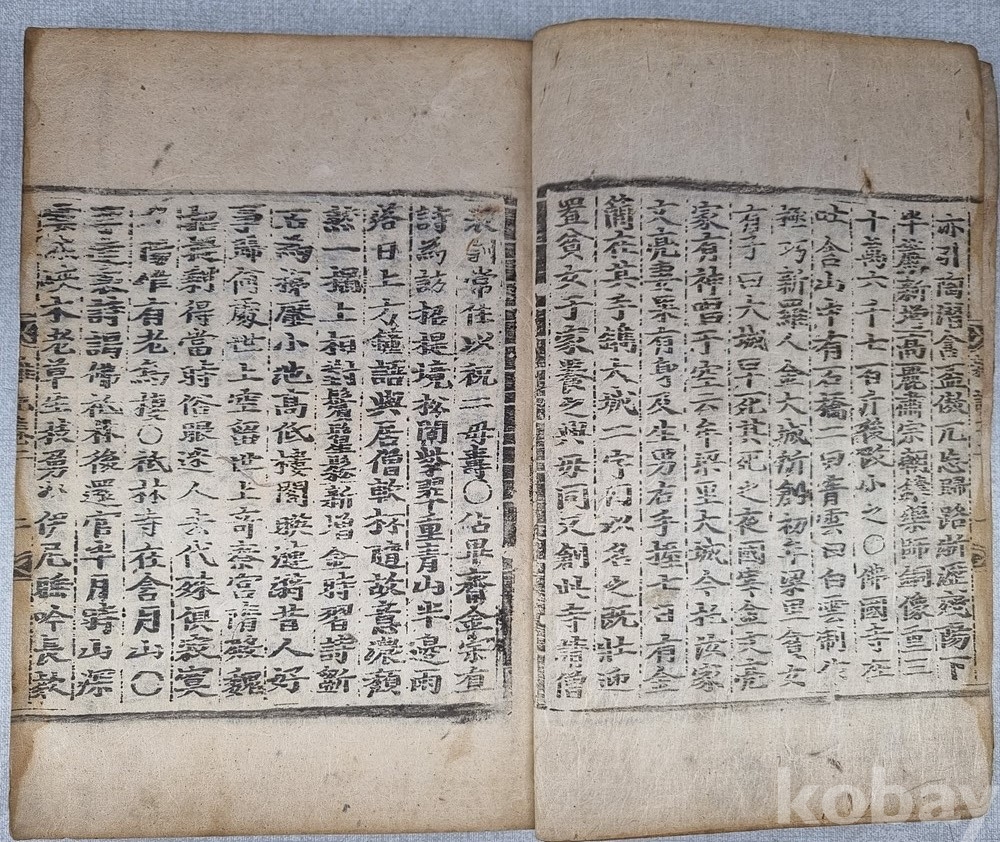 亦引陶潛含盃傲兀忘歸路斷涯陽下
半簾新增高麗肅宗朝鑄藥師銅像重三
十萬六千七百斤後改小之〇佛國寺在
吐含山中有石橋二曰青雲曰白雲制作
極巧新羅人金大城所創初牟梁里貧女
有子曰大城早死其死之夜國宰金文亮
家有神唱于空云牟梁里大城今托汝家
文亮妻果有身及生男右手握七日有金
簡在其手鐫大城二字仍以名之既壯迎
置貧女于家養之與母同又創此寺請僧
表訓常住以祝二母壽〇佔畢齋金宗直
詩為訪招提境松間紫翠重青山半邊雨
落日上方鍾語與居僧軟杯隨故意濃頹
然一榻上相對鬢鬅鬆新增金時習詩斷
石為梯壓小池高低樓閣映漣漪昔人好
事歸何處世上空留世上奇秦宮隋殿魏
招提剩得當時俗眼迷人去代殊俱寂寞
夕陽唯有老烏棲〇祇林寺在含月山〇
李達衷詩謁佛祇林後還官半月時山深
不老草生枝伊尼聽吟長歎
kobay